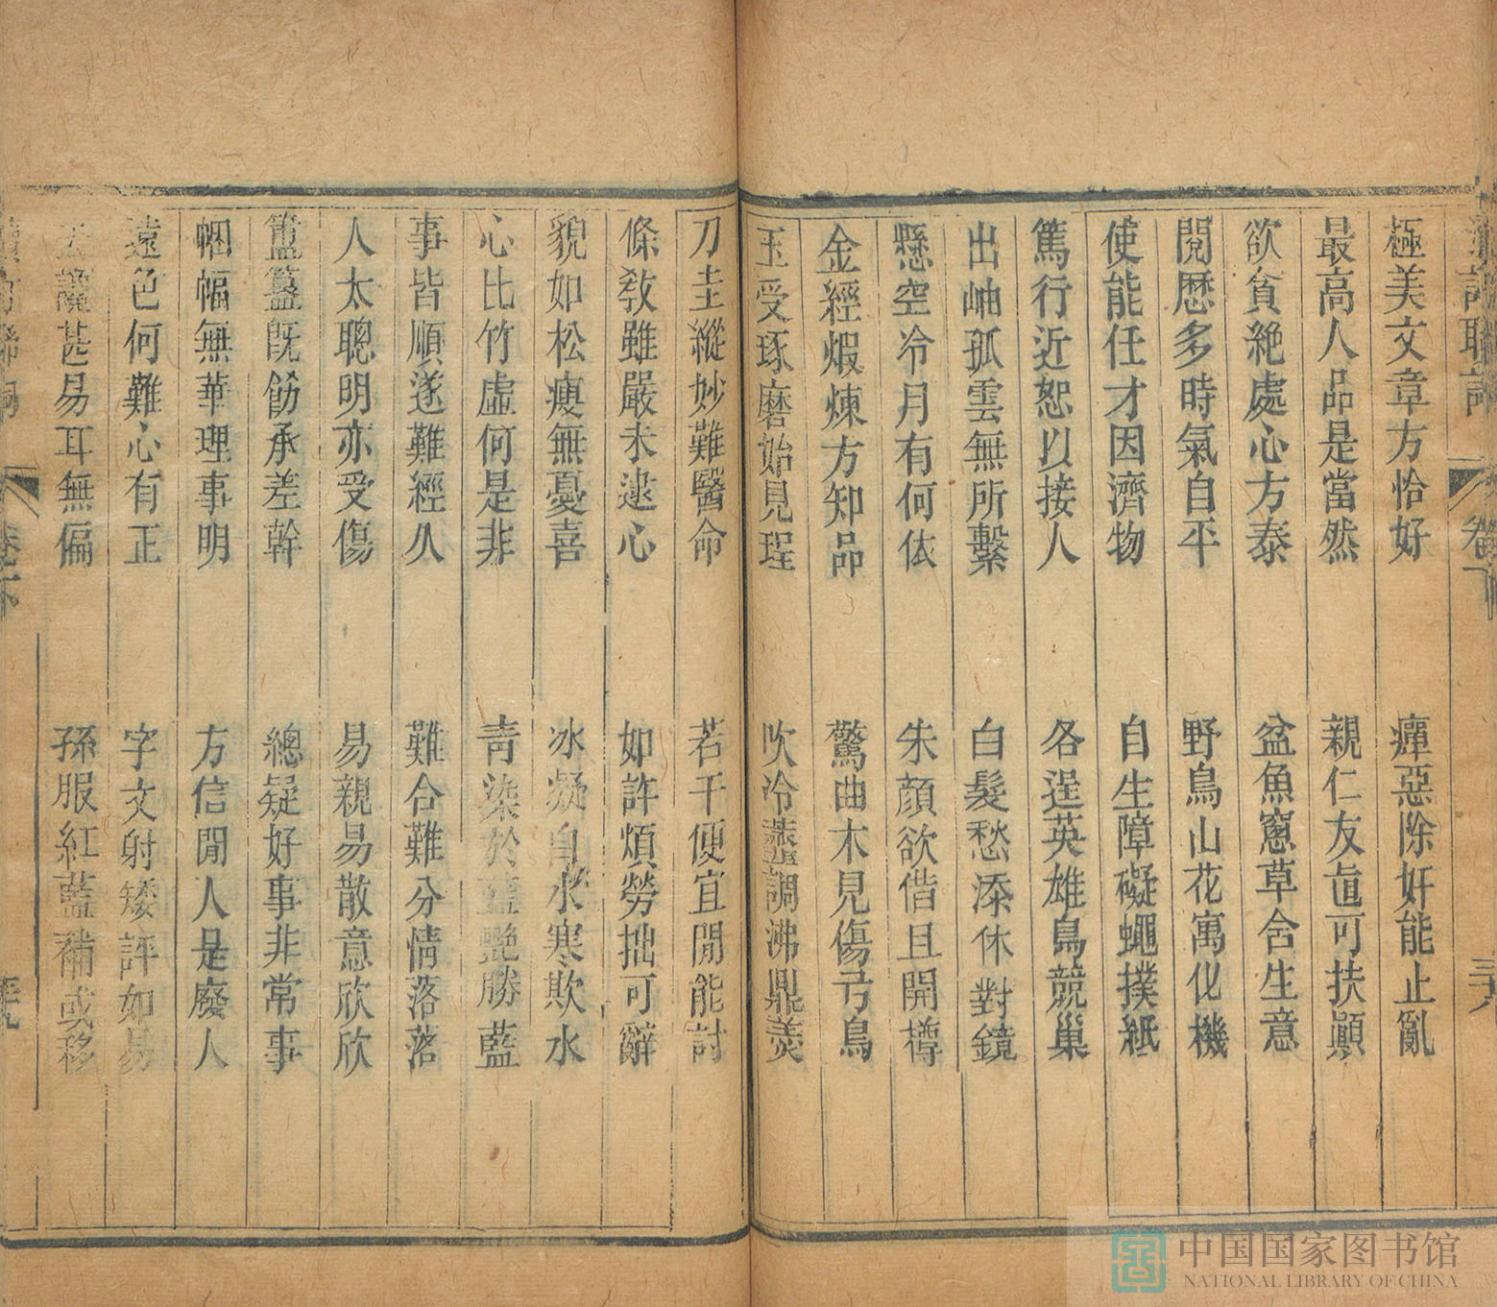 極美文章方恰好 癉惡除奸能止亂
最高人品是當然 親仁友直可扶顚
欲貪絶處心方泰 盆魚窻草含生意
閱歷多時氣自平 野鳥山花寓化機
使能任才因濟物 自生障礙蠅撲紙
篤行近恕以接人 各逞英雄鳥競巢
出岫孤雲無所繫 白髮愁添休對鏡
懸空冷月有何依 朱顏欲借且開樽
金經煅煉方知品 驚曲木見傷弓鳥
玉受琢磨始見珵 吹冷虀調沸鼎羮
刀圭縱妙難醫命 若干便宜閒能討
條敎雖嚴未逮心 如許煩勞拙可辭
貌如松瘦無憂喜 冰凝自水寒欺水
心比竹虛何是非 靑染於藍艷勝藍
事皆順遂難經久 難合難分情落落
人太聰明亦受傷 易親易散意欣欣
簠簋旣飭承差幹 總疑好事非常事
悃愊無華理事明 方信閒人是廢人
遠色何難心有正 字文射矮評如易
甚易耳無偏 孫服紅藍補或移
卷下
中国国家图书馆
NATIONAL LIBRARY OF CHINA